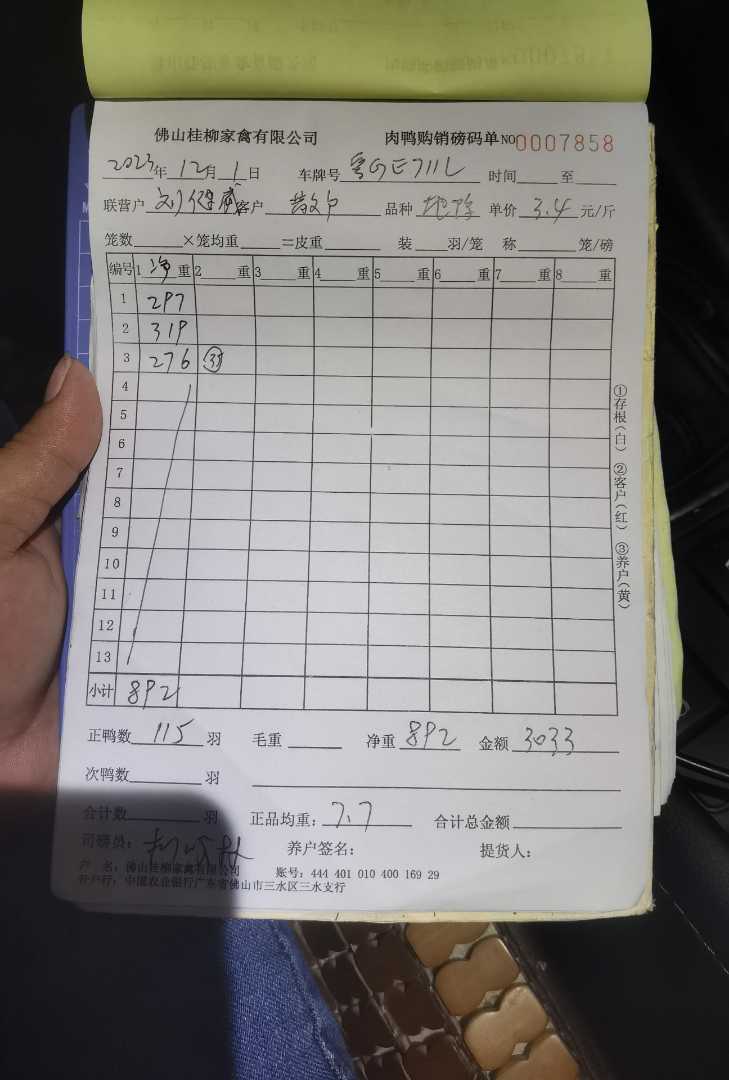 佛山桂柳家禽有限公司 肉鸭购销磅码单 NO 0007858
2023年 12月 1日 车牌号 粤GE711L 时间 至
联营户 刘 威 客户 散户 品种 单价 3.4 元/斤
笼数 ×笼均重 =皮重 装 羽/笼 称 笼/磅
编号 1 净 重 2 重 3 重 4 重 5 重 6 重 7 重 8 重
1 297
2 319
3 276
4
5
6
7
8
9
10
11
12
13
小计 892
正鸭数 115 羽 毛重 净重 892 金额 3033
次鸭数 羽
合计数 羽 正品均重: 7.7 合计总金额
司磅员: 养户签名: 提货人:
户 名: 佛山桂柳家禽有限公司 账号: 444 401 010 400 169 29
开户行: 中国农业银行广东省佛山市三水区三水支行
①存根(白) ②客户(红) ③养户(黄)